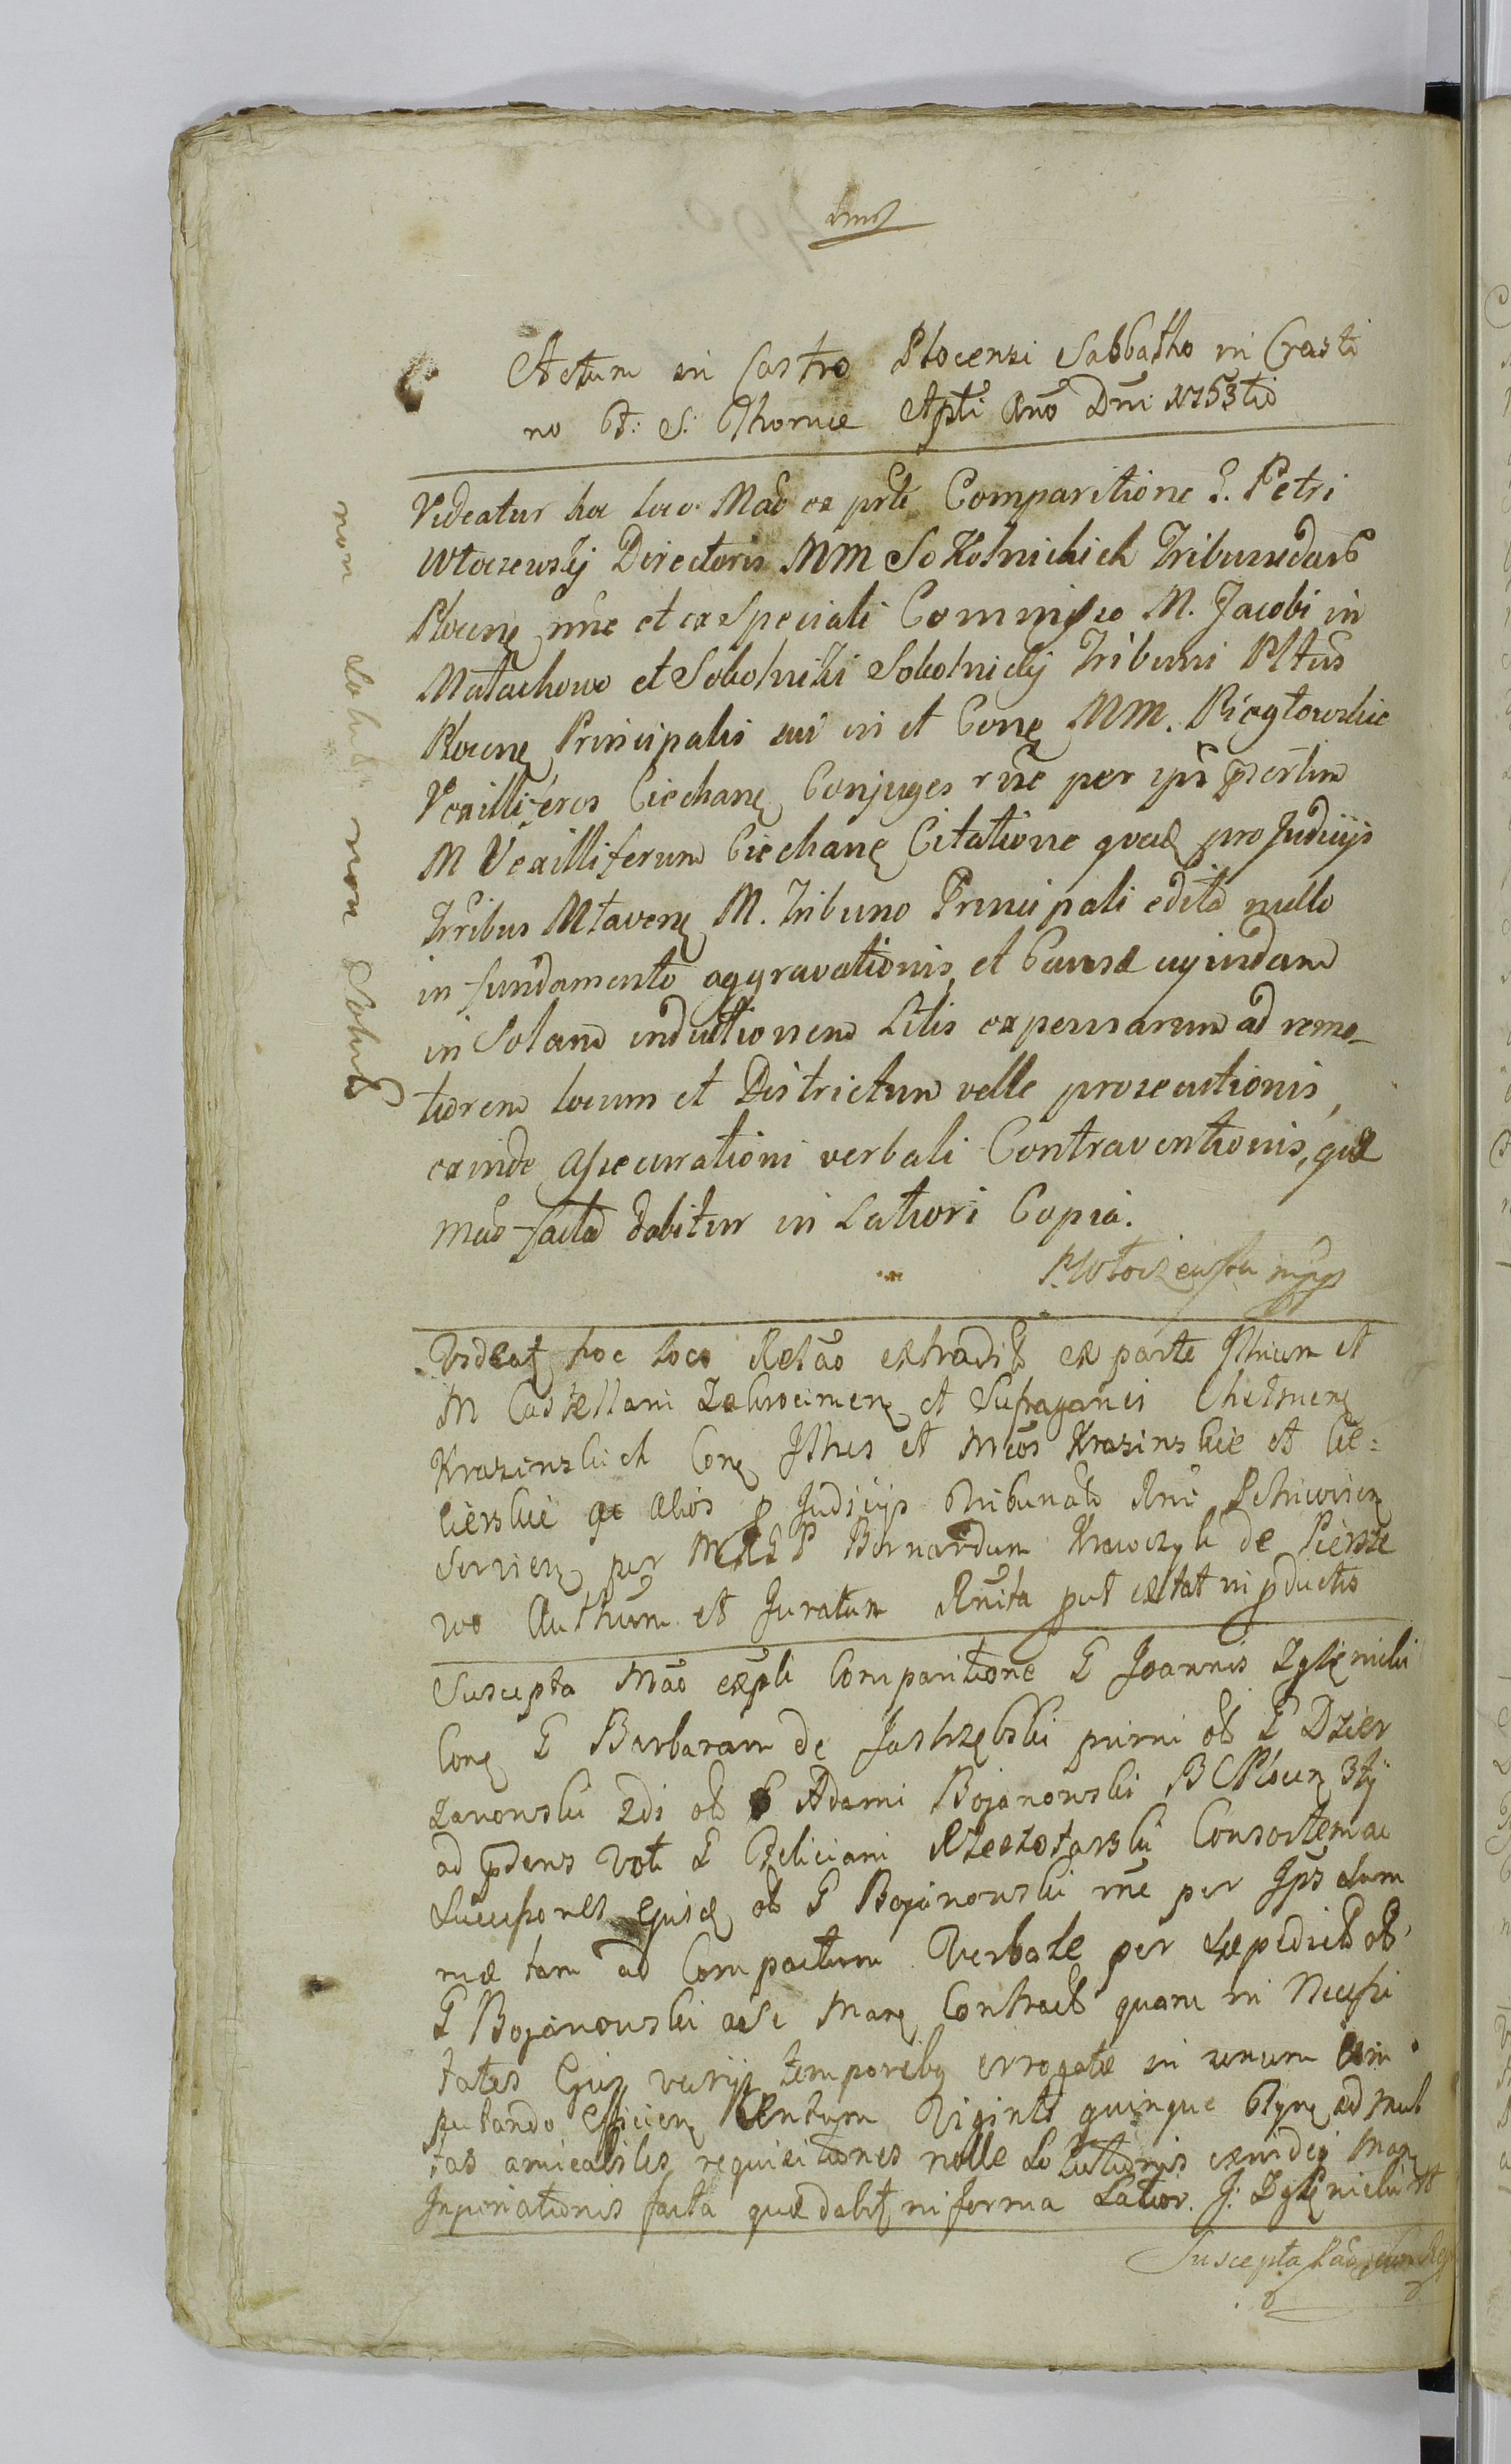 Actum in Castro Plocensi Sabbatho in Crasti
no F: S: Thomæ Apli Ano Dni 1753tio
Videatur hoc loco Mão ex prte Comparitione G. Petri
Włoczewskij Directoris MM Sokolnickich Tribunidarů
Plocen nñe et ex speciali Commisso M. Jacobi in
Małachowo et Sokolniki Sokolnickij Tribuni Pltus
Plocen Principalis sui in et Con MM. Piegłowskie
Vexilliferos Ciechan Conjuges rñe per ips psertim
M Vexilliferum Ciechan Citatione quad pro Judicijs
Trribus Mlaven M. Tribuno Principali edita nullo
in fundamento aggravationis, et Causæ cujusdam
in Solam inductionem Litis expensarum ad remo-
tiorem locum et Districtum velle prosecutionis,
exinde assecurationi verbali Contraventionis, quæ
Mão facta dabitur in Latiori Copia.
P. Włoczewski mpp
Videat hoc loco Relão extradit ex parte Illrium et
M Castellani Zakrocimen et Sufraganei Chelmen
Krasinskich Con Illres et Mcos Krasinskie et Cie=
cierskie ac alios p Judicijs Tribunals Rni Petricovien
Servien per M R P Bernardum Krawczyk de Pierste
wo Authum et Juratum Rnita put extat in pductis
Suscepta Mão expte Comparitione G Joannis Zglenicki
Con G Barbaram de Jastrzębskie primi ol G Dzier
zanowski 2di ol G Adami Bojanowski B C Plocen 3tij
ad pdens Voti G Feliciani Rzeszotarski Consortem ac
Successores ejusd ol G Bojanowski rñe per Ips Sum
mæ tam ad Compactum Verbale per sæpedict ol
G Bojanowski acse Man Contract quam in Necessi
tates Ejus varijs temporibq errogatæ in unum com
putando efficien Centum Viginti quinque Tynf ad mul
tas amicabiles requisitiones nolle Solutionis exinde Man
Inpoñationis facta quæ dabit in forma Latior. J: Zglenicki
Suscepta
non Solut non Solut